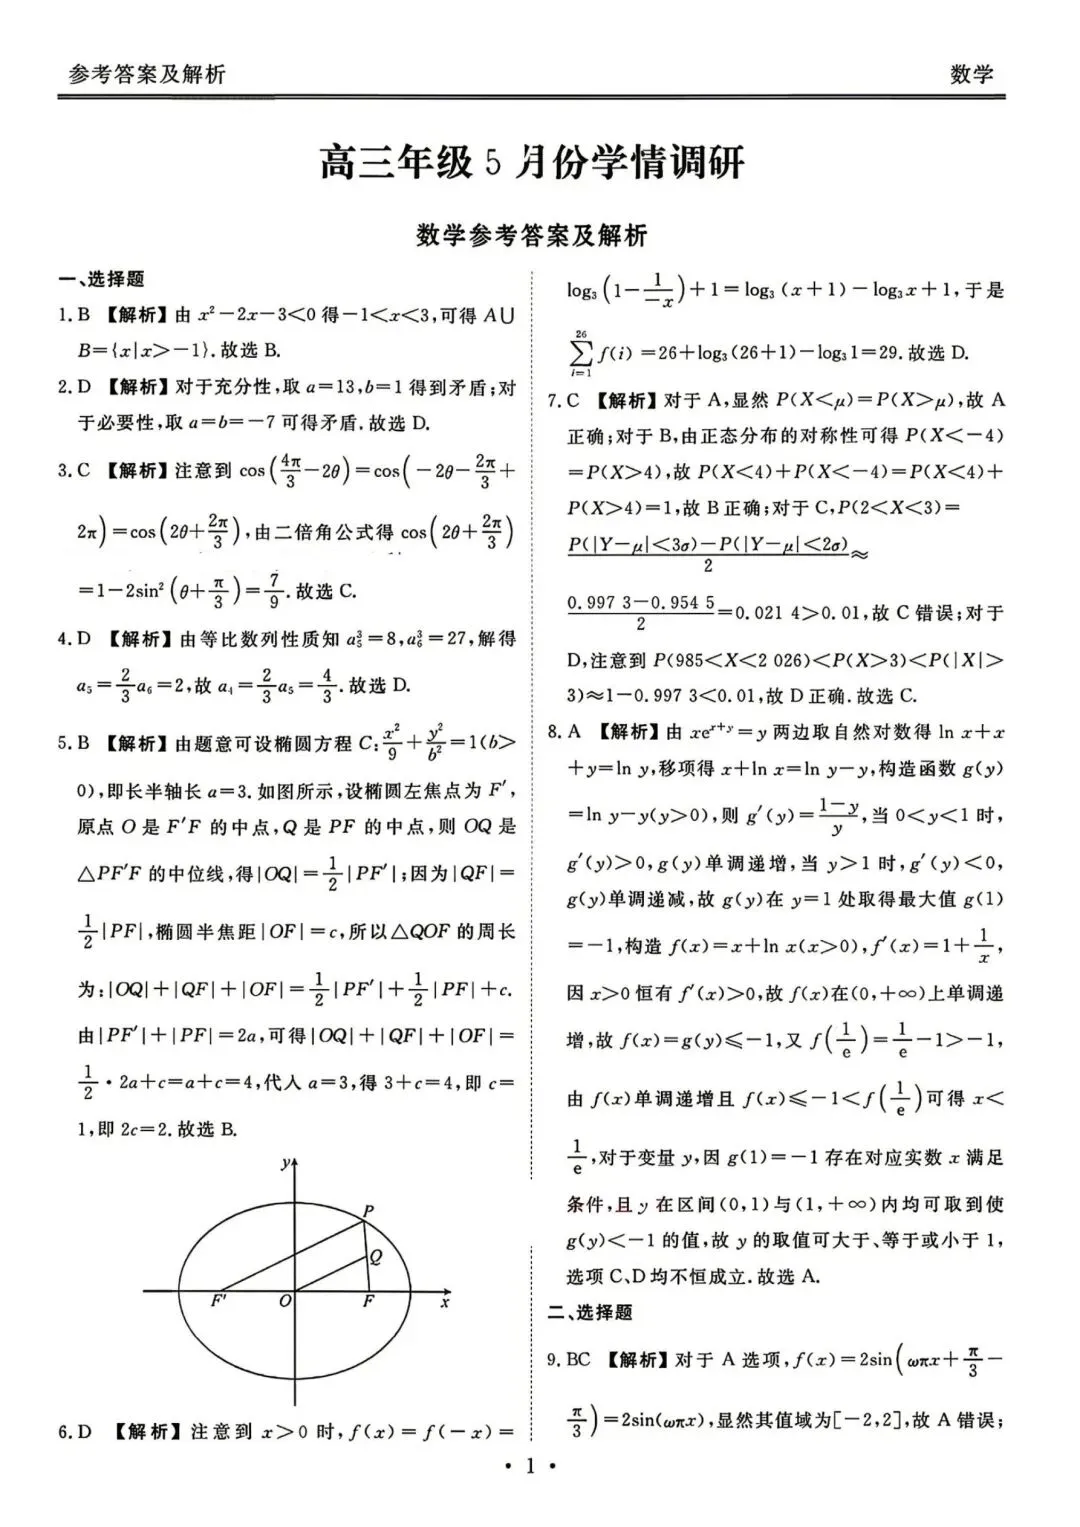 参考答案及解析 数学
高三年级 5 月份学情调研
数学参考答案及解析
一、选择题
1. B 【解析】由 x²－2x－3＜0 得－1＜x＜3,可得 A∪
B={x|x＞－1}. 故选 B.
2. D 【解析】对于充分性,取 a＝13,b＝1 得到矛盾;对
于必要性,取 a＝b＝－7 可得矛盾. 故选 D.
3. C 【解析】注意到 cos(4π/3－2θ)＝cos(－2θ－2π/3＋
2π)＝cos(2θ＋2π/3),由二倍角公式得 cos(2θ＋2π/3)
＝1－2sin²(θ＋π/3)＝7/9. 故选 C.
4. D 【解析】由等比数列性质知 a₅³＝8,a₆³＝27,解得
a₅＝2/3a₆＝2,故 a₄＝2/3a₅＝4/3. 故选 D.
5. B 【解析】由题意可设椭圆方程 C:x²/9＋y²/b²＝1(b＞
0),即长半轴长 a＝3. 如图所示,设椭圆左焦点为 F′,
原点 O 是 F′F 的中点,Q 是 PF 的中点,则 OQ 是
△PF′F 的中位线,得|OQ|＝1/2|PF′|;因为|QF|＝
1/2|PF|,椭圆半焦距|OF|＝c,所以△QOF 的周长
为:|OQ|＋|QF|＋|OF|＝1/2|PF′|＋1/2|PF|＋c.
由|PF′|＋|PF|＝2a,可得|OQ|＋|QF|＋|OF|＝
1/2·2a＋c＝a＋c＝4,代入 a＝3,得 3＋c＝4,即 c＝
1,即 2c＝2. 故选 B.
y
P
Q
F′ O F x
6. D 【解析】注意到 x＞0 时, f(x)＝f(－x)＝
log₃(1－1/－x)＋1＝log₃(x＋1)－log₃x＋1,于是
26∑i=1 f(i)＝26＋log₃(26＋1)－log₃1＝29. 故选 D.
7. C 【解析】对于 A,显然 P(X＜μ)＝P(X＞μ),故 A
正确;对于 B,由正态分布的对称性可得 P(X＜－4)
＝P(X＞4),故 P(X＜4)＋P(X＜－4)＝P(X＜4)＋
P(X＞4)＝1,故 B 正确;对于 C,P(2＜X＜3)＝
P(|Y－μ|＜3σ)－P(|Y－μ|＜2σ)/2≈
0.997 3－0.954 5/2＝0.021 4＞0.01,故 C 错误;对于
D,注意到 P(985＜X＜2 026)＜P(X＞3)＜P(|X|＞
3)≈1－0.997 3＜0.01,故 D 正确. 故选 C.
8. A 【解析】由 xeˣ⁺ʸ＝y 两边取自然对数得 ln x＋x
＋y＝ln y,移项得 x＋ln x＝ln y－y,构造函数 g(y)
＝ln y－y(y＞0),则 g′(y)＝1－y/y,当 0＜y＜1 时,
g′(y)＞0,g(y)单调递增,当 y＞1 时,g′(y)＜0,
g(y)单调递减,故 g(y)在 y＝1 处取得最大值 g(1)
＝－1,构造 f(x)＝x＋ln x(x＞0),f′(x)＝1＋1/x,
因 x＞0 恒有 f′(x)＞0,故 f(x)在(0,＋∞)上单调递
增,故 f(x)＝g(y)≤－1,又 f(1/e)＝1/e－1＞－1,
由 f(x)单调递增且 f(x)≤－1＜f(1/e)可得 x＜
1/e,对于变量 y,因 g(1)＝－1 存在对应实数 x 满足
条件,且 y 在区间(0,1)与(1,＋∞)内均可取到使
g(y)＜－1 的值,故 y 的取值可大于、等于或小于 1,
选项 C、D 均不恒成立. 故选 A.
二、选择题
9. BC 【解析】对于 A 选项,f(x)＝2sin(ωπx＋π/3－
π/3)＝2sin(ωπx),显然其值域为[－2,2],故 A 错误;
· 1 ·